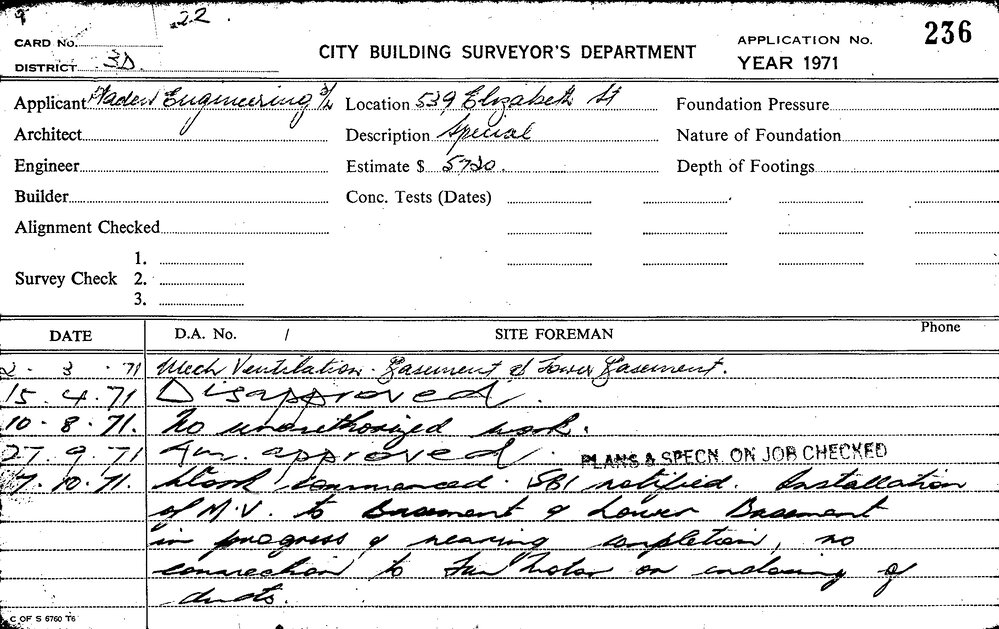 9 .22.
CARD No.
CITY BUILDING SURVEYOR'S DEPARTMENT
APPLICATION No. 236
DISTRICT 3D.
YEAR 1971
Applicant Engineering P/L Location 539 Elizabeth St Foundation Pressure
Architect Description Special Nature of Foundation
Engineer Estimate $ 5720. Depth of Footings
Builder Conc. Tests (Dates)
Alignment Checked
1.
Survey Check 2.
3.
DATE D.A. No. / SITE FOREMAN Phone
2 . 3 . 71 Mech Ventilation. Basement & Lower Basement.
15. 4. 71 Disapproved.
10 . 8 . 71. No unauthorized work.
27. 9. 71 approved. PLANS & SPECN. ON JOB CHECKED
7. 10. 71. Work commenced. SBI notified. Installation
of M.V. to Basement & Lower Basement
in progress & nearing completion, no
connection to Fan Motor or enclosing of
ducts.
C OF S 6760 T6